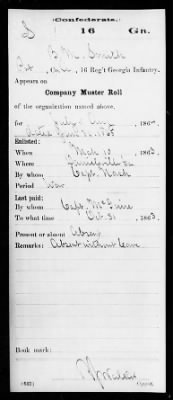 (Confederate.)
S 16 Ga.
B. M. Smith
Pvt, Co., 16 Reg't Georgia Infantry.
Appears on
Company Muster Roll
of the organization named above,
for July & Aug, 186
dated
Enlisted:
When Mch 10, 1863.
Where
By whom Capt. Nash
Period War
Last paid:
By whom Capt. McGuire
To what time Oct 31, 1863.
Present or absent Absent
Remarks: Absent without leave
Book mark:
(642)
Copyist.